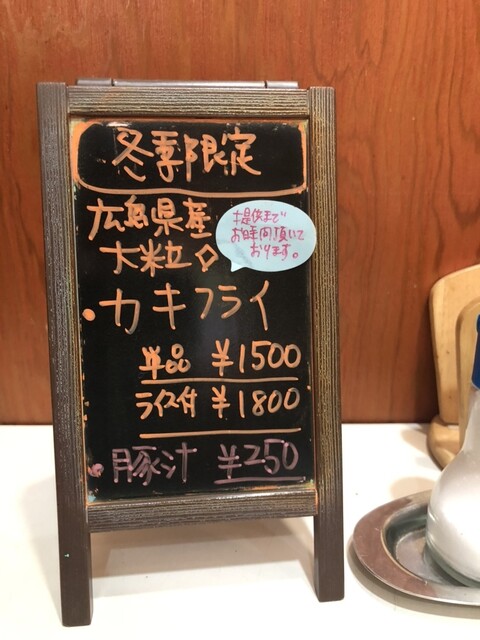 冬季限定
広島県産
大粒の
・カキフライ
単品 ¥1500
ライス付 ¥1800
・豚汁 ¥250
提供まで
お時間頂いて
おります。